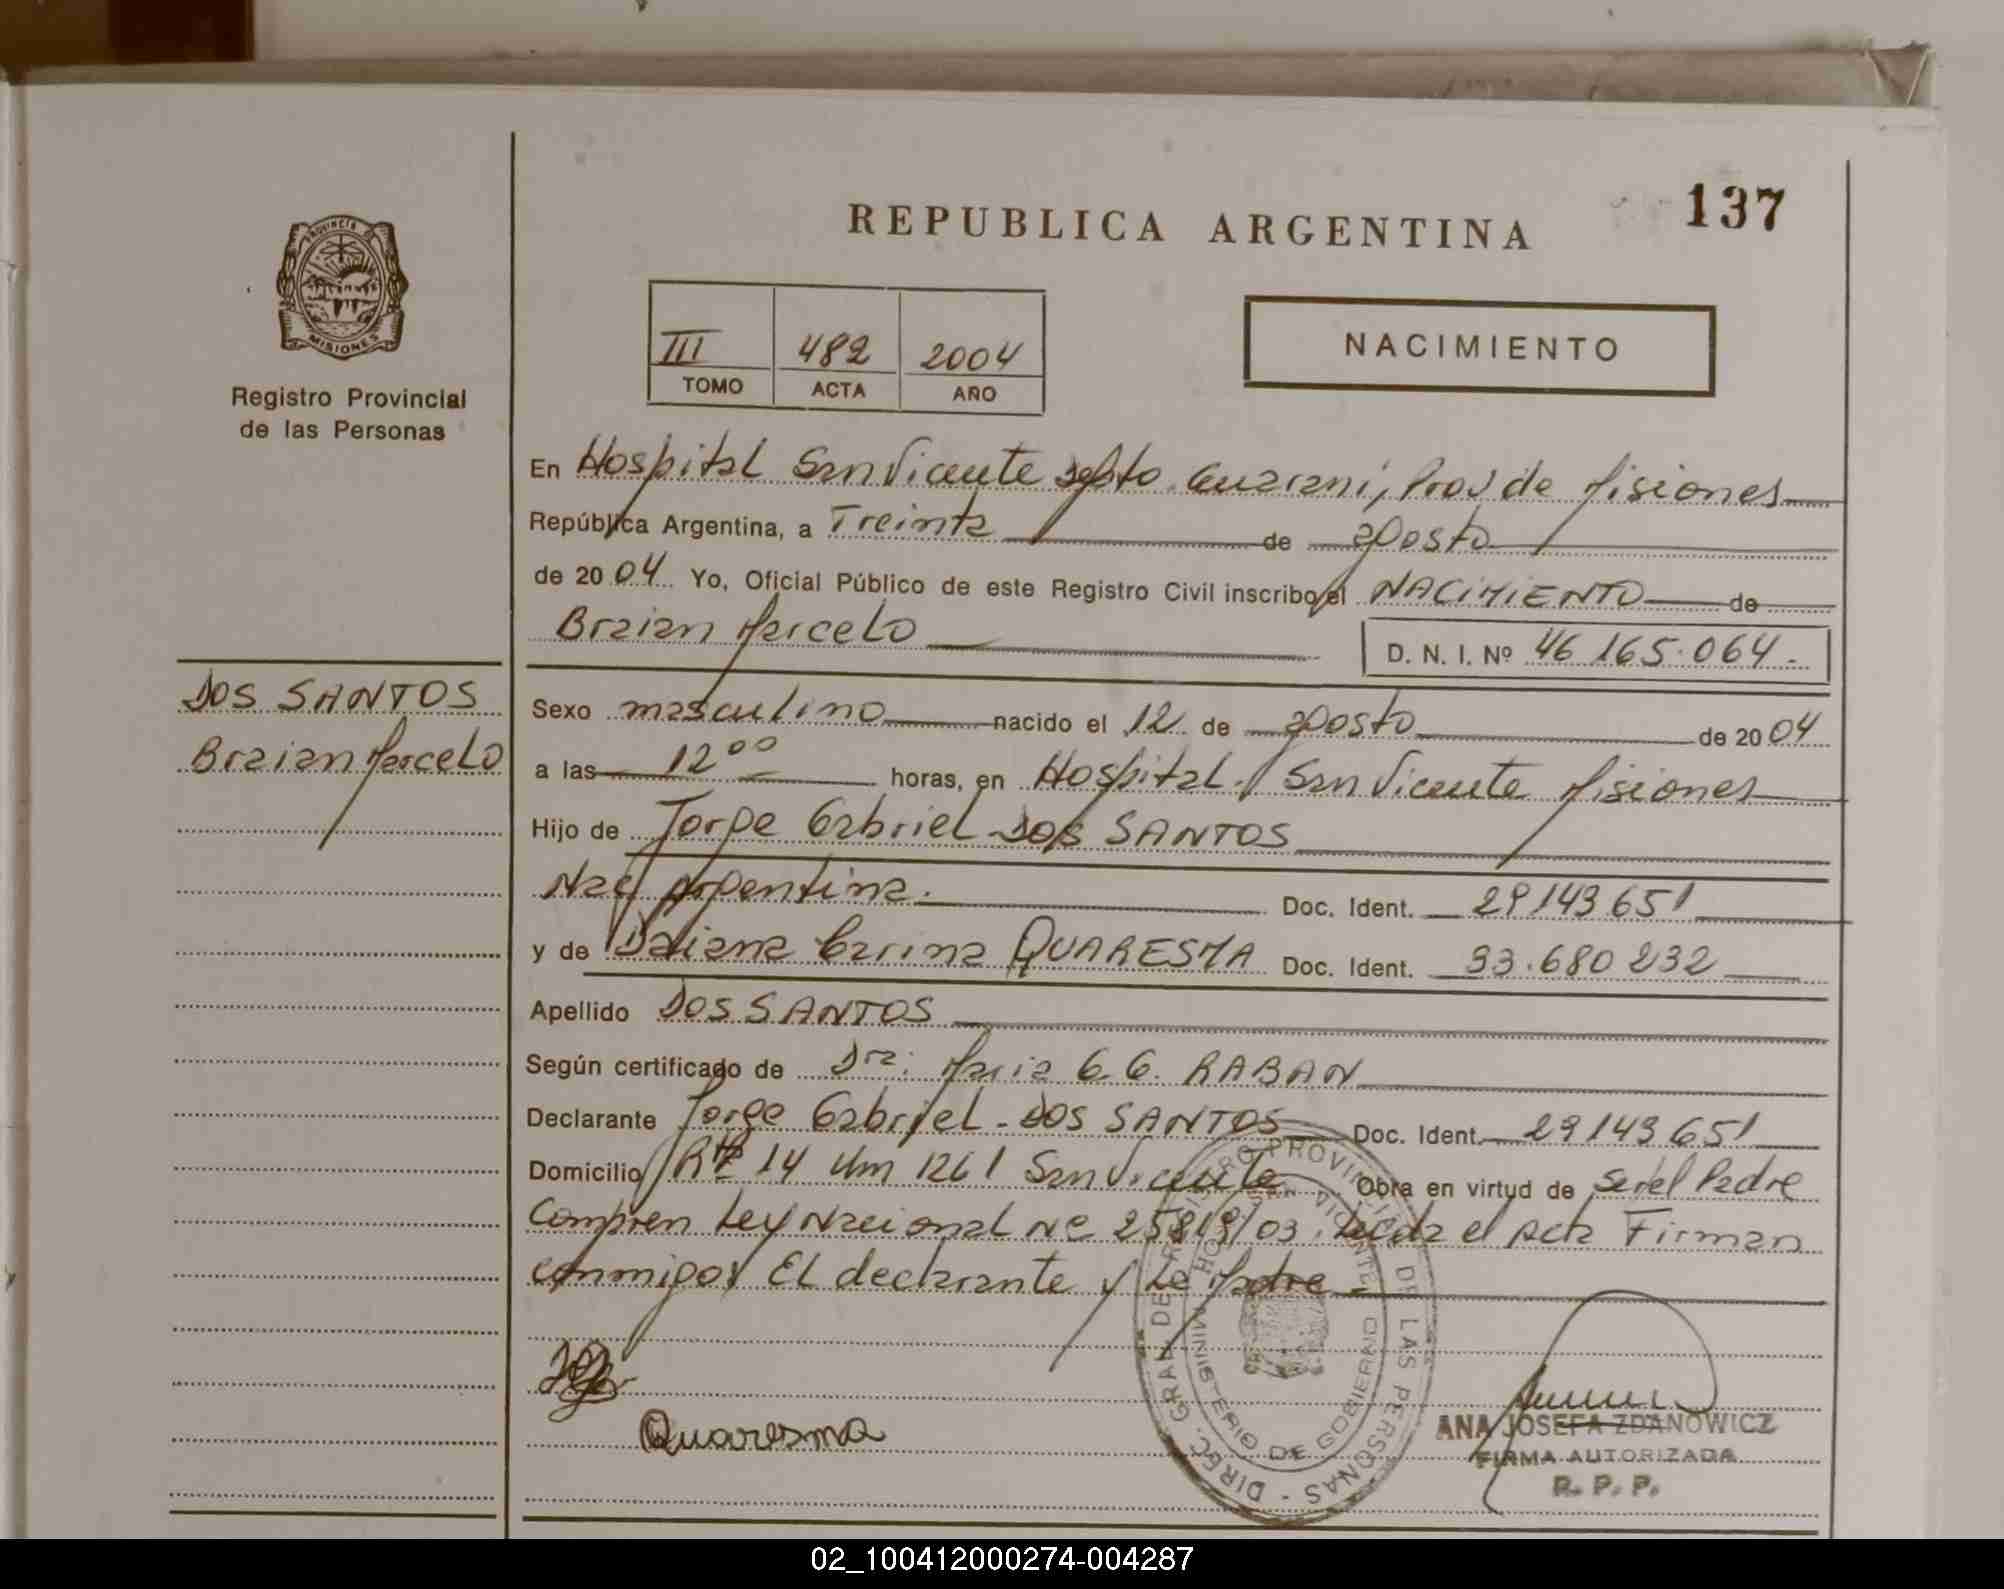 137
REPUBLICA ARGENTINA
PROVINCIA DE
MISIONES
Registro Provincial
de las Personas
III 482 2004
TOMO ACTA AÑO
NACIMIENTO
En Hospital San Vicente Depto. Guarani, Prov de Misiones
República Argentina, a Treinta de agosto
de 2004 Yo, Oficial Público de este Registro Civil inscribo el NACIMIENTO de
Braian Marcelo
D. N. I. Nº 46 165.064.-
DOS SANTOS
Braian Marcelo
Sexo masculino nacido el 12 de agosto de 2004
a las 12 00 horas, en Hospital. San Vicente Misiones
Hijo de Jorge Gabriel DOS SANTOS
Nac Argentina. Doc. Ident. 29 143 651
y de Daiana Carina QUARESMA Doc. Ident. 33.680 232
Apellido DOS SANTOS
Según certificado de Dra. Maria G. G. RABAN
Declarante Jorge Gabriel DOS SANTOS Doc. Ident. 29 143 651
Domicilio Rta 14 Km 1261 San Vicente Obra en virtud de ser el Padre
Compren Ley Nacional Nº 25819/03. Leida el Acta Firman
conmigo El declarante y La Madre -
DIREC. GRAL. DEL REGISTRO PROVINCIAL DE LAS PERSONAS -
HOSP. SAN VICENTE
MINISTERIO DE GOBIERNO
Quaresma
ANA JOSEFA ZDANOWICZ
FIRMA AUTORIZADA
R. P. P.
02_100412000274-004287